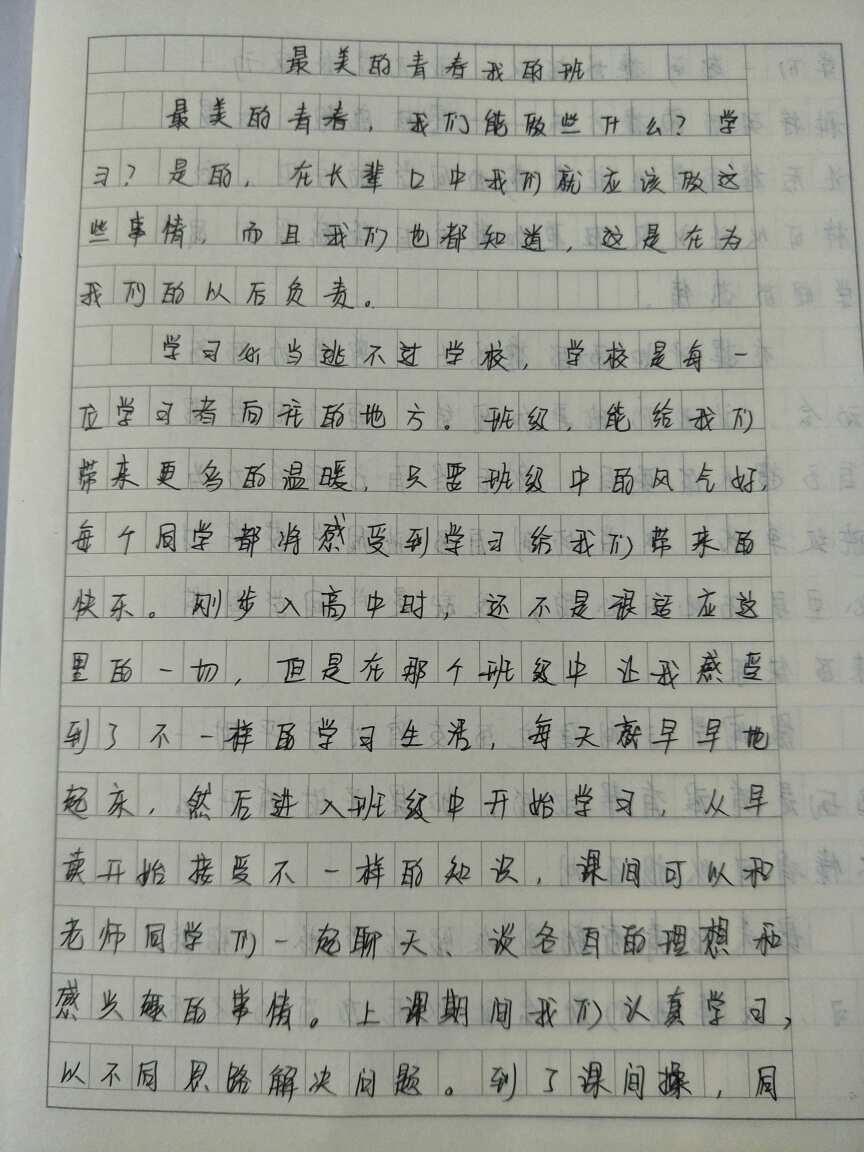 最美的青春我的班
最美的青春，我们能做些什么？学
习？是的，在长辈口中我们就应该做这
些事情，而且我们也都知道，这是在为
我们的以后负责。
学习必当逃不过学校，学校是每一
位学习者向往的地方。班级，能给我们
带来更多的温暖，只要班级中的风气好，
每个同学都将感受到学习给我们带来的
快乐。刚步入高中时，还不是很适应这
里的一切，但是在那个班级中让我感受
到了不一样的学习生活，每天就早早地
起床，然后进入班级中开始学习，从早
读开始接受不一样的知识，课间可以和
老师同学们一起聊天、谈各自的理想和
感兴趣的事情。上课期间我们认真学习，
以不同思路解决问题。到了课间操，同